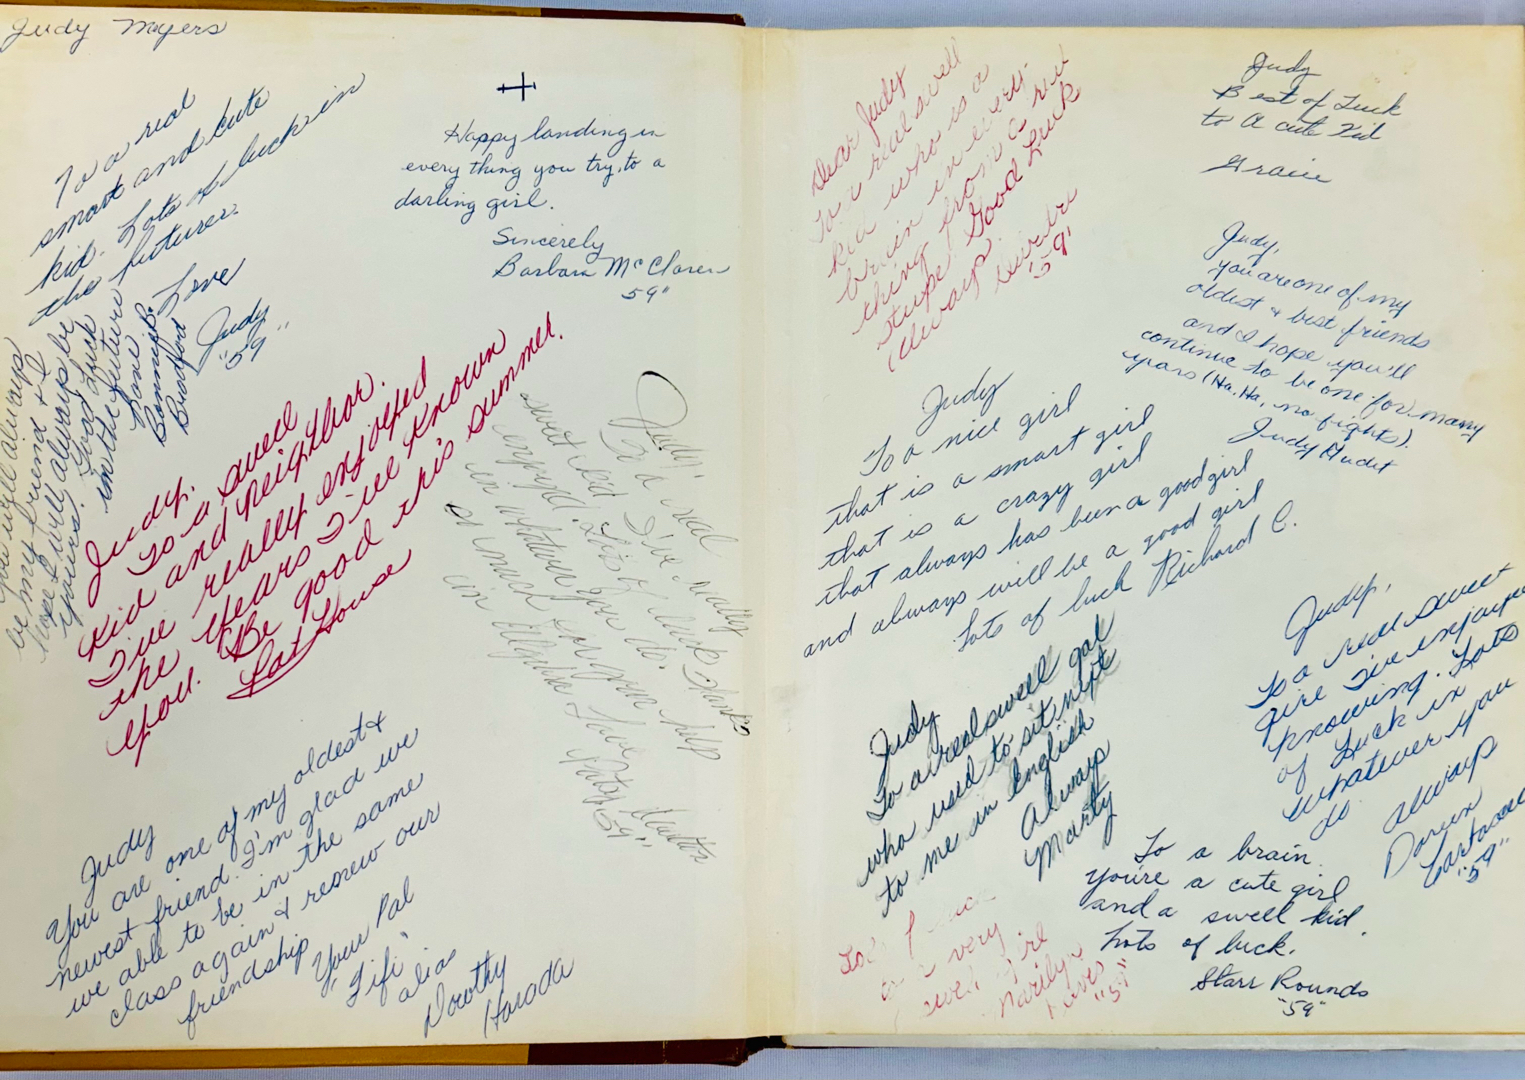 Judy Meyers
To a real
smart and cute
kid. Lots of luck in
the future.
Love
Judy
"59"
Happy landing in
every thing you try, to a
darling girl.
Sincerely
Barbara McClaren
59"
you will always
be my friend & I
hope I will always be
yours. Good Luck
in the future
Love
Bonnie B.
Bradford
Judy,
To a swell
kid and neighbor.
I've really enjoyed
the years I've known
you. Be good this summer.
Pat House
Judy,
To a real
sweet kid I've really
enjoyed. Lots of luck
in whatever you do. Thanks
so much for your help
in Algebra Love
Patsy
"59"
Judy
You are one of my oldest &
newest friend. I'm glad we
we able to be in the same
class again & renew our
friendship
Your Pal
"Fifi"
alias
Dorothy
Harada
Dear Judy
To a real swell
kid who is a
brain in every-
thing from a real
stupe. Good Luck
Always
"59"
Judy
Best of Luck
to A cute Kid
Gracie
Judy,
you are one of my
oldest & best friends
and I hope you'll
continue to be one for many
years (Ha, Ha, no fights).
Judy Audet
Judy
To a nice girl
that is a smart girl
that is a crazy girl
that always has been a good girl
and always will be a good girl
Lots of luck Richard C.
Judy
To a real swell gal
who used to sit next
to me in English
Always
Marty
Judy,
To a real sweet
girl I've enjoyed
knowing. Lots
of Luck in
whatever you
do
Always
Doreen
"59"
a very
swell girl
Marilyn
"59"
To a brain.
You're a cute girl
and a swell kid.
Lots of luck.
Starr Rounds
"59"